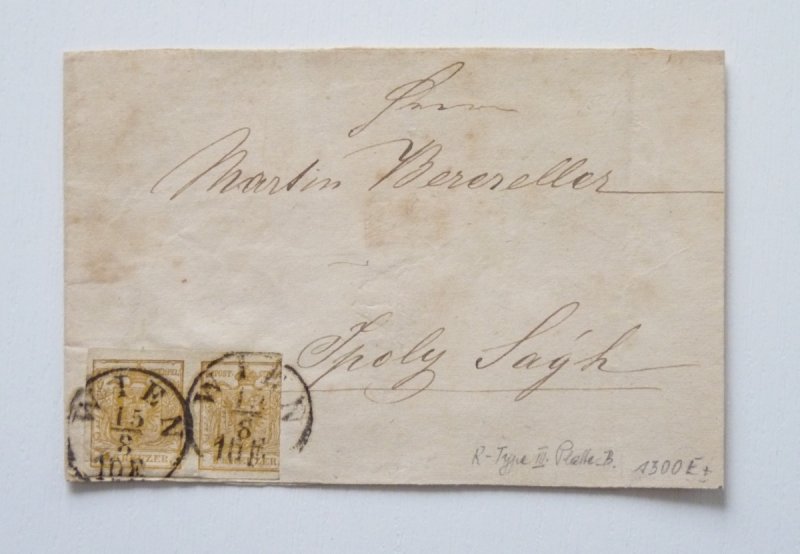 Herrn
Martin Bercreller
Ipoly Ságh
WIEN
15
8
10 E
KREUZER
WIEN
15
8
10 E
R-Type III. Platte B.
1300 E +